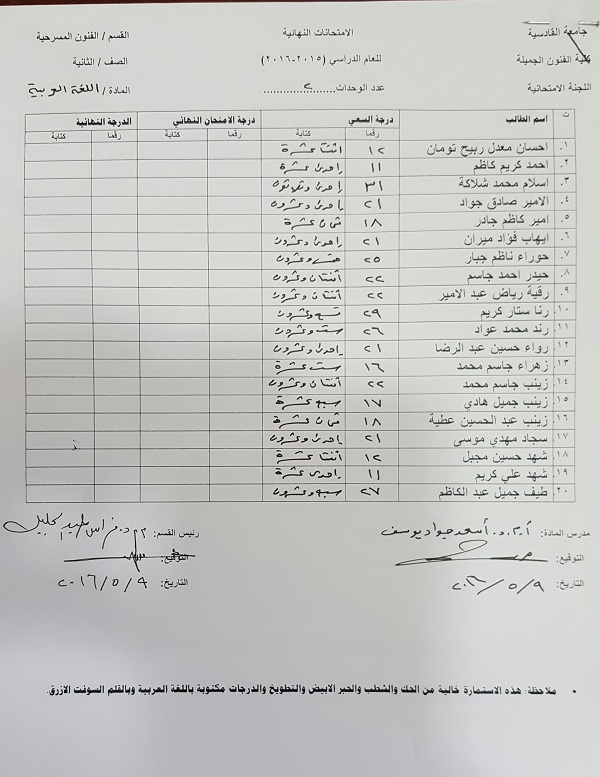 جامعة القادسية الامتحانات النهائية القسم / الفنون المسرحية
كلية الفنون الجميلة للعام الدراسي (٢٠١٥-٢٠١٦) الصف / الثانية
اللجنة الامتحانية عدد الوحدات......٢...... المادة / اللغة العربية
ت اسم الطالب درجة السعي درجة الامتحان النهائي الدرجة النهائية
رقما كتابة رقما كتابة رقما كتابة
١. احسان معدل ربيح تومان ١٢ اثنتا عشرة
٢. احمد كريم كاظم ١١ احدى عشرة
٣. اسلام محمد شلاكة ٣١ احدى وثلاثون
٤. الامير صادق جواد ٢١ احدى وعشرون
٥. امير كاظم جادر ١٨ ثمان عشرة
٦. ايهاب فؤاد ميران ٢١ احدى وعشرون
٧. حوراء ناظم جبار ٢٥ خمس وعشرون
٨. حيدر احمد جاسم ٢٢ اثنتان وعشرون
٩. رقية رياض عبد الامير ٢٢ اثنتان وعشرون
١٠. رنا ستار كريم ٢٩ تسع وعشرون
١١. رند محمد عواد ٢٦ ست وعشرون
١٢. رواء حسين عبد الرضا ٢١ احدى وعشرون
١٣. زهراء جاسم محمد ١٦ ست عشرة
١٤. زينب جاسم محمد ٢٢ اثنتان وعشرون
١٥. زينب جميل هادي ١٧ سبع عشرة
١٦. زينب عبد الحسين عطية ١٨ ثمان عشرة
١٧. سجاد مهدي موسى ٢١ احدى وعشرون
١٨. شهد حسين مجبل ١٢ اثنتا عشرة
١٩. شهد علي كريم ١١ احدى عشرة
٢٠. طيف جميل عبد الكاظم ٢٧ سبع وعشرون
مدرس المادة: أ.م.د. أسعد جواد يوسف رئيس القسم:
التوقيع: التوقيع:
التاريخ: ٢٠١٦/٥/٩ التاريخ: ٢٠١٦/٥/٩
• ملاحظة: هذه الاستمارة خالية من الحك والشطب والحبر الابيض والتطويخ والدرجات مكتوبة باللغة العربية وبالقلم السوفت الازرق.